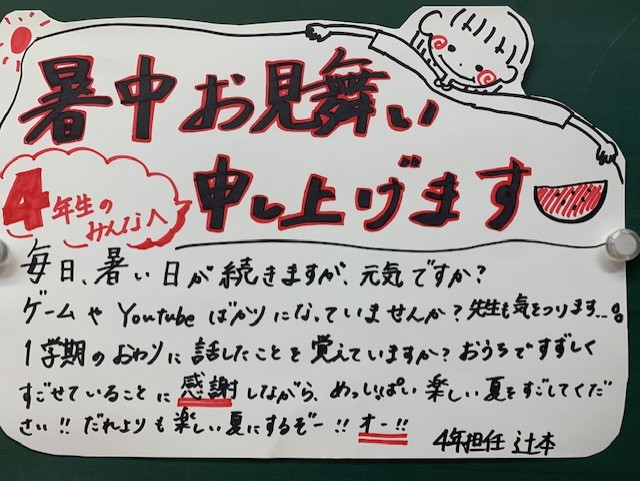 暑中お見舞い
申し上げます
4年生の
みんなへ
毎日、暑い日が続きますが、元気ですか?
ゲームや Youtube ばかりになっていませんか?先生も気をつけます…。
1学期のおわりに話したことを覚えていますか?おうちですずしく
すごせていることに感謝しながら、めっっぱい楽しい夏をすごしてくだ
さい!!だれよりも楽しい夏にするぞー!!オー!!
4年担任 辻本